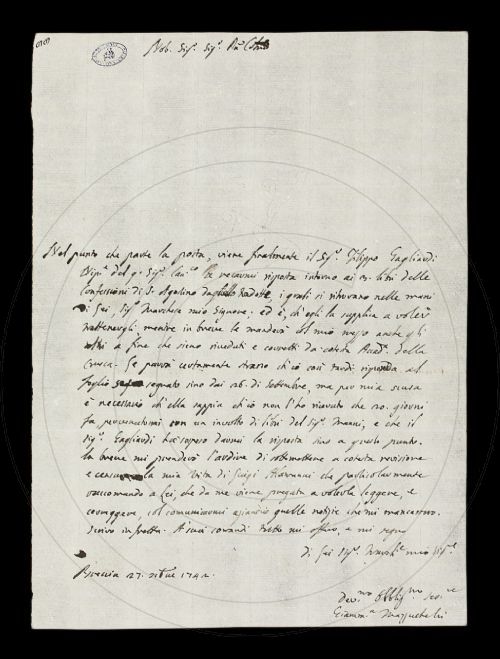 Nob. Sig.r Sig.r
Nel punto che parte la posta, viene finalmente il Sig.r Filippo Gagliardi
Nip.e del q. Sig.r Can.co a recarmi risposta intorno ai libri delle
Confessioni di S. Agostino da tradotte, i quali si ritrovano nelle mani
di Lei, Sig.r Marchese mio Signore, ed è, ch'egli la supplica a voler
trattenergli mentre in breve le manderà col mio mezzo anche gli
altri a fine che sieno riveduti e corretti da cotesta Accad. della
Crusca. Se parrà certamente strano ch'io così tardi risponda al
foglio segnato sino dai 26. di Settembre, ma per mia scusa
è necessario ch'ella sappia ch'io non l'ho ricevuto che 20. giorni
fa pervenutomi con un involto di libri del Sig.r Manni, e che il
Sig.r Gagliardi ha sospeso darmi la risposta sino a questo punto.
In breve mi prenderò l'ardire di sottomettere a cotesta revisione
e censura la mia Vita di Luigi Alamanni che particolarmente
raccomando a Lei, che da me viene pregata a volerla leggere, e
correggere, col comunicarmi quelle notizie che mi mancassero.
Scrivo in fretta. A' suoi comandi tutto mi offero, e mi segno
Di Lei Sig.r March.e mio Sig.r
Brescia 27. 1742.
Dev.mo Obblig.mo Ser.re
Giamm.a Mazzuchelli